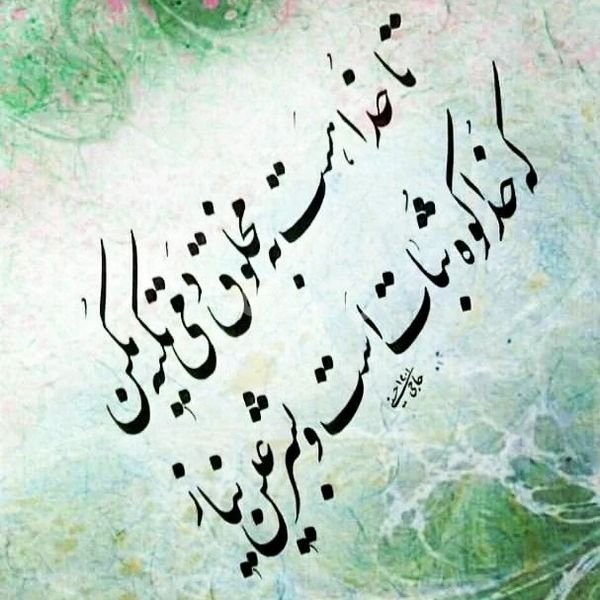 تا خدا هست به مخلوق دمی تکیه مکن
که خدا کوه ثبات است و بشر عین نیاز